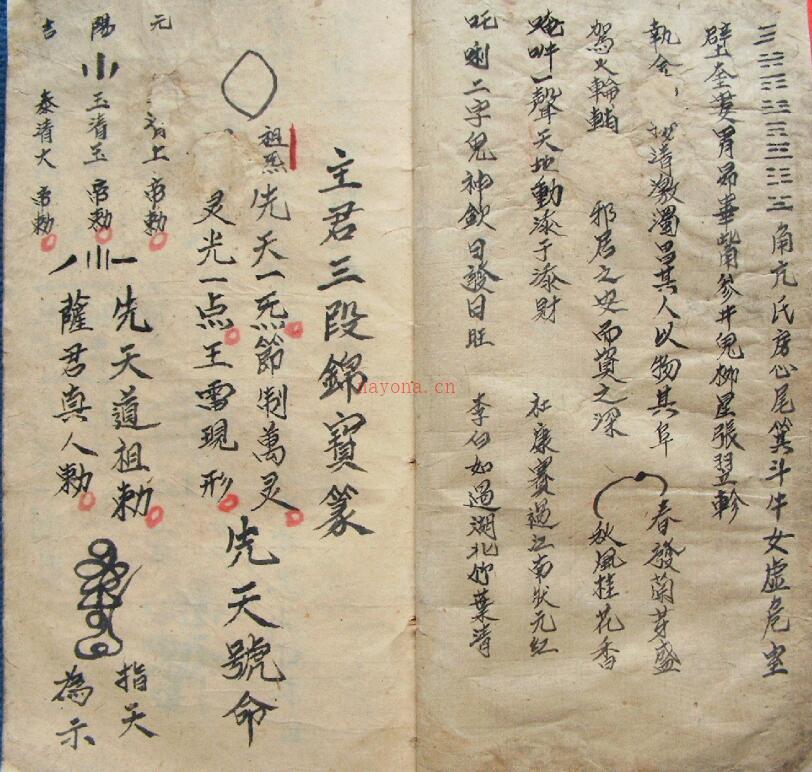 角亢氏房心尾箕斗牛女虛危室
壁奎婁胃昴畢觜參井鬼柳星張翌軫
執金 清激濁昌其人以物其阜
春發蘭芽盛
駕火輪輔 居之安而資之深
秋風桂花香
唵吽一聲天地動添子添財
杜康賽過江南狀元紅
吒唎二字鬼神欽日發日旺
李白如過湖北竹葉清
主君三段錦寶篆
祖炁
先天一炁節制萬灵
灵光一点王雷現形
先天號命
元
清上帝勅
陽
玉清玉帝勅
吉
泰清大帝勅
先天道祖勅
薩君真人勅
指天
為示
nayona.cn